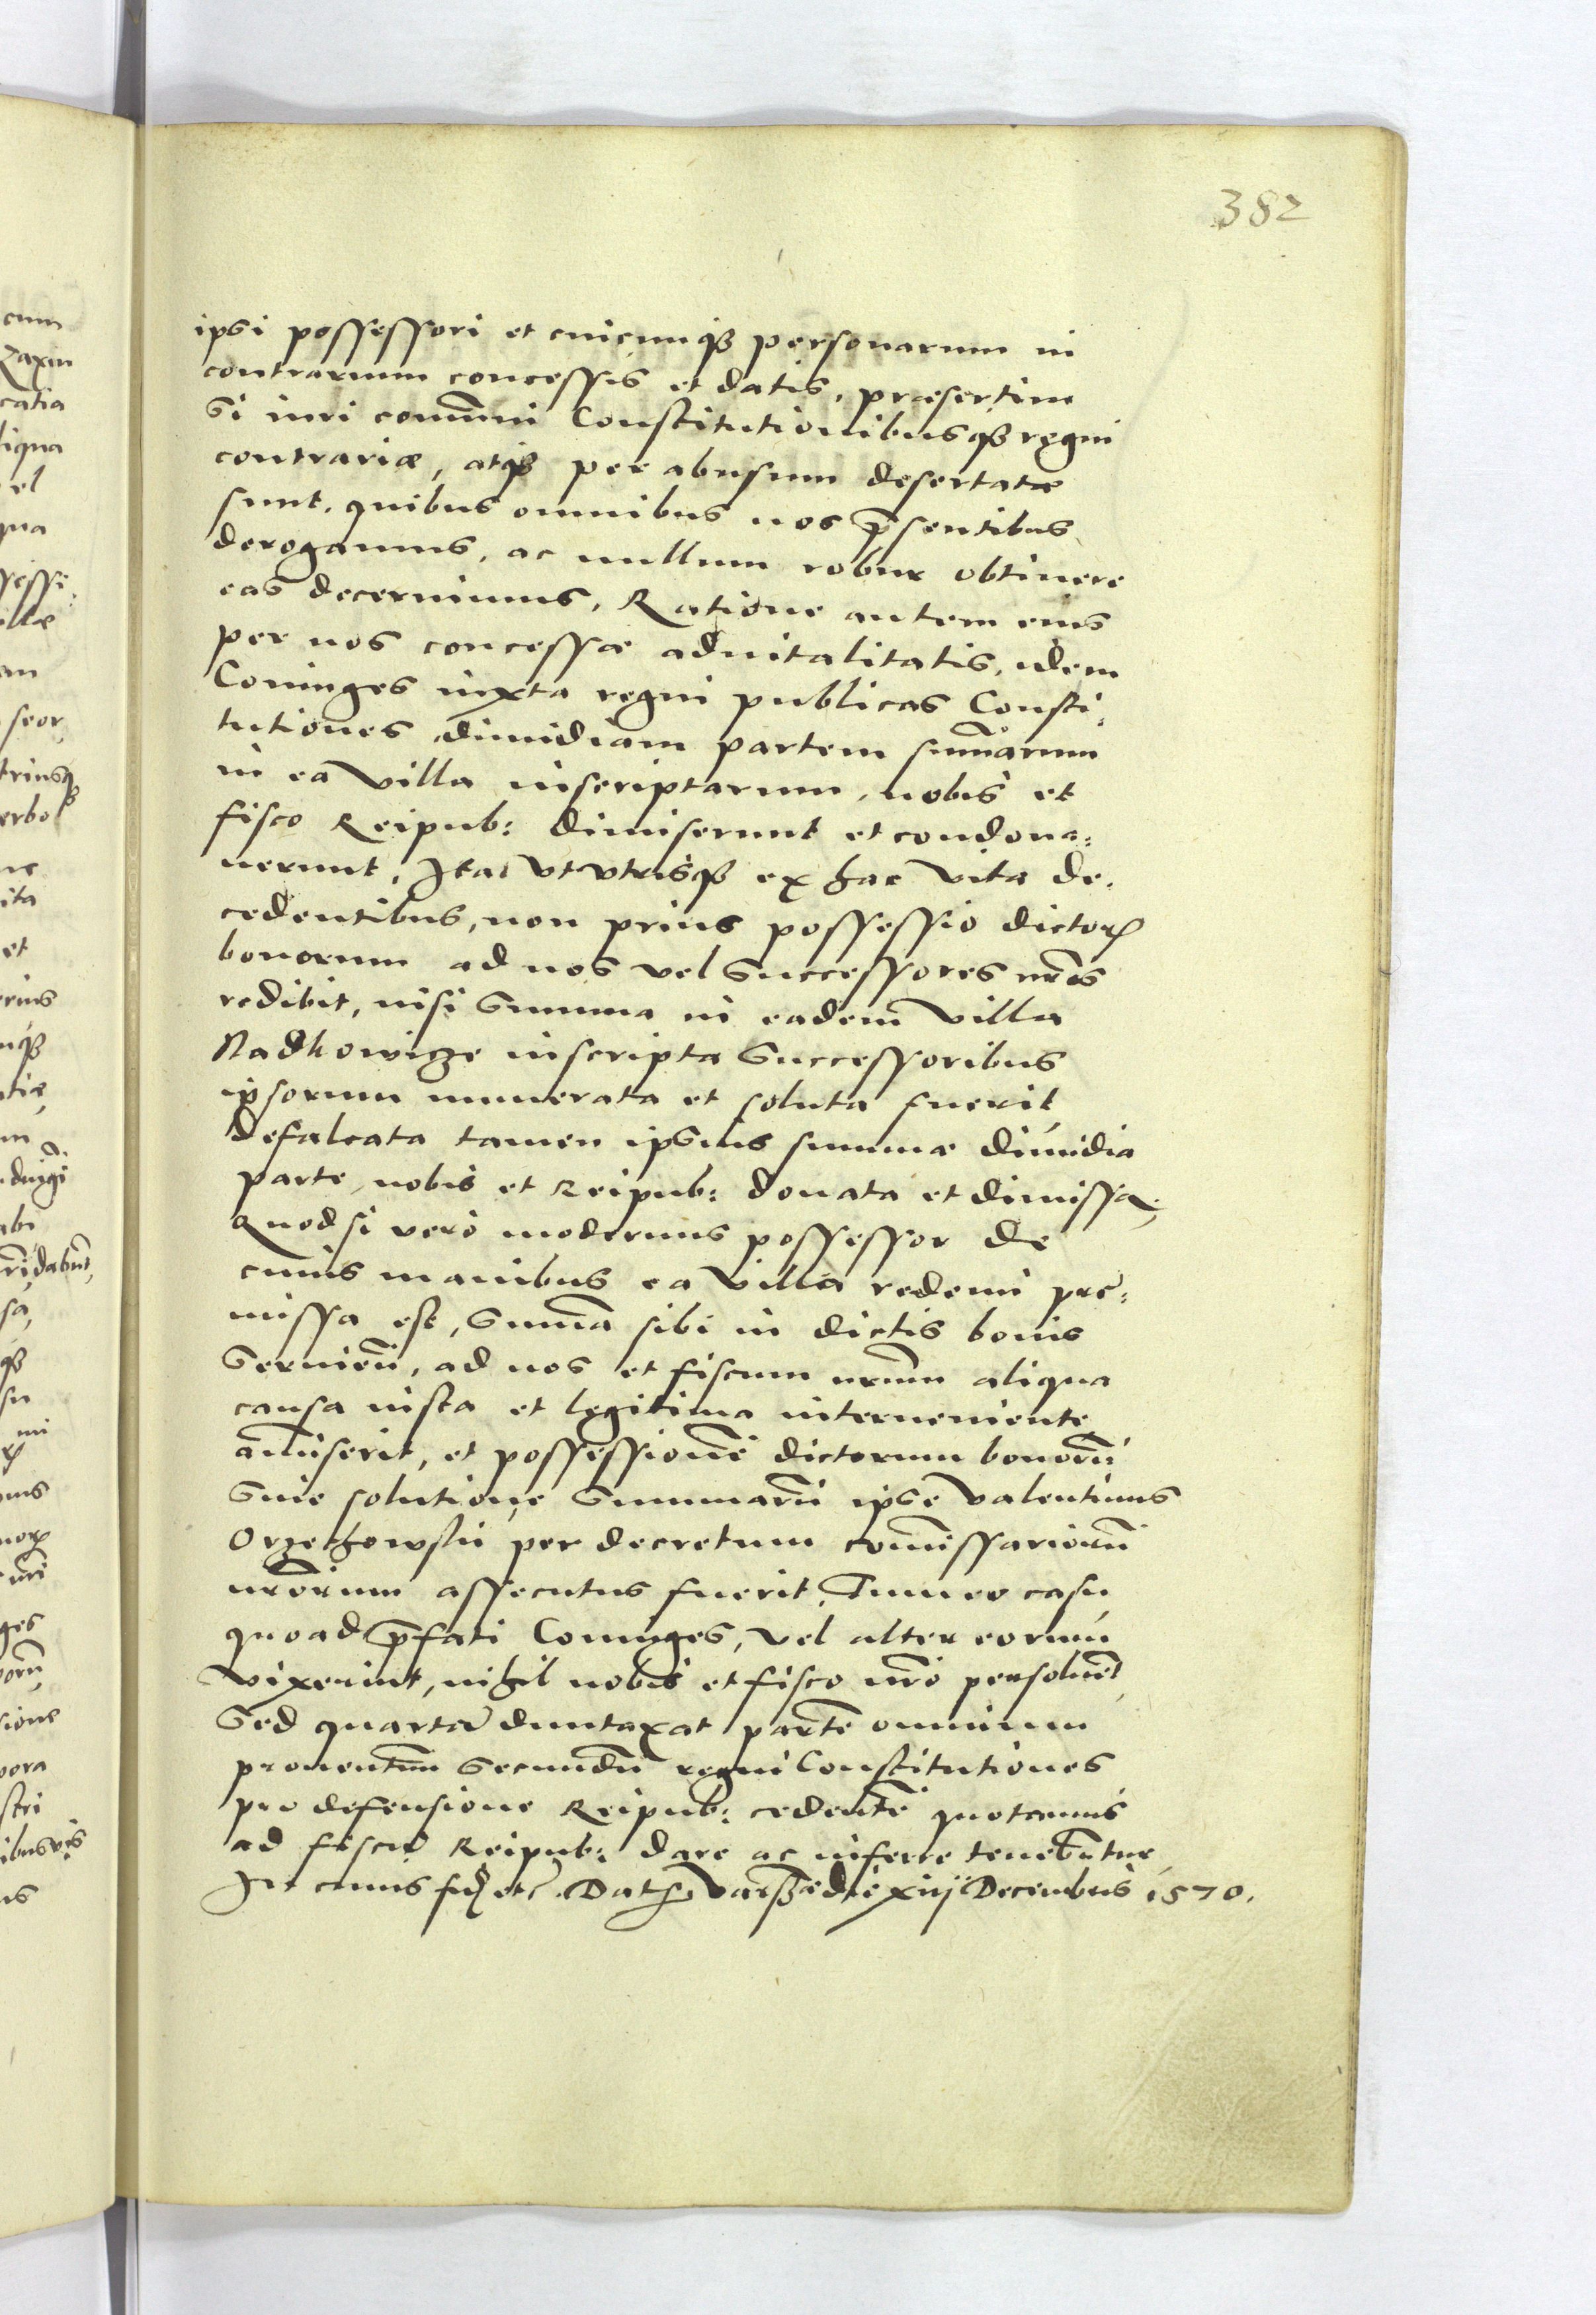 382
ipsi possessori et cuicunqꝫ personarum in
contrarium concessis et datis, præsertim
si iuri comūni Constitutionibusqꝫ regni
contrariæ, atqꝫ per abusum desertatæ
sunt, quibus omnibus nos p̄sentibus
derogamus, ac nullum robur obtinere
eas decernimus, Ratione autem eius
per nos concessæ aduitalitatis, idem
Coniuges iuxta regni publicas Consti,
tutiones dimidiam partem sum̄arum
in ea villa inscriptarum, nobis et
fisco Reipub: dimiserunt et condona:
uerunt, Ita vt vtrisqꝫ ex hac vita de,
cedentibus, non prius possessio dictoꝝ
bonorum ad nos vel Successores nr̄os
redibit, nisi Summa in eadem villa
Radkowicze inscripta Successoribus
ipsorum numerata et soluta fuerit,
defalcata tamen ipsius summæ dimidia
parte, nobis et Reipub: donata et dimissa,
Quod si vero modernus possessor de
cuius manibus ea villa redemi per,
missa est, Sum̄a sibi in dictis bonis
Seruieñ, ad nos et fiscum nr̄um aliqua
causa iusta et legitima interueniente
amiserit, et possessionē dictorum bonorū
Siue solutione Summarū ipse Valentinus
Orzechowski per decretum com̄issariorū
nr̄orum assecutus fuerit, Tum eo casu
quoad p̄fati Coniuges, vel alter eorum
vixerint, nihil nobis et fisco nr̄o persoluēt,
Sed quartā duntaxat partē omnium
prouentuū Secundū regni Constitutiones
pro defensione Reipub: cedentē quotannis
ad fiscū Reipub: dare ac inferre tenebūtur,
In cuius fidē etc. Dat Varssæ die xiiij Decembris 1570.